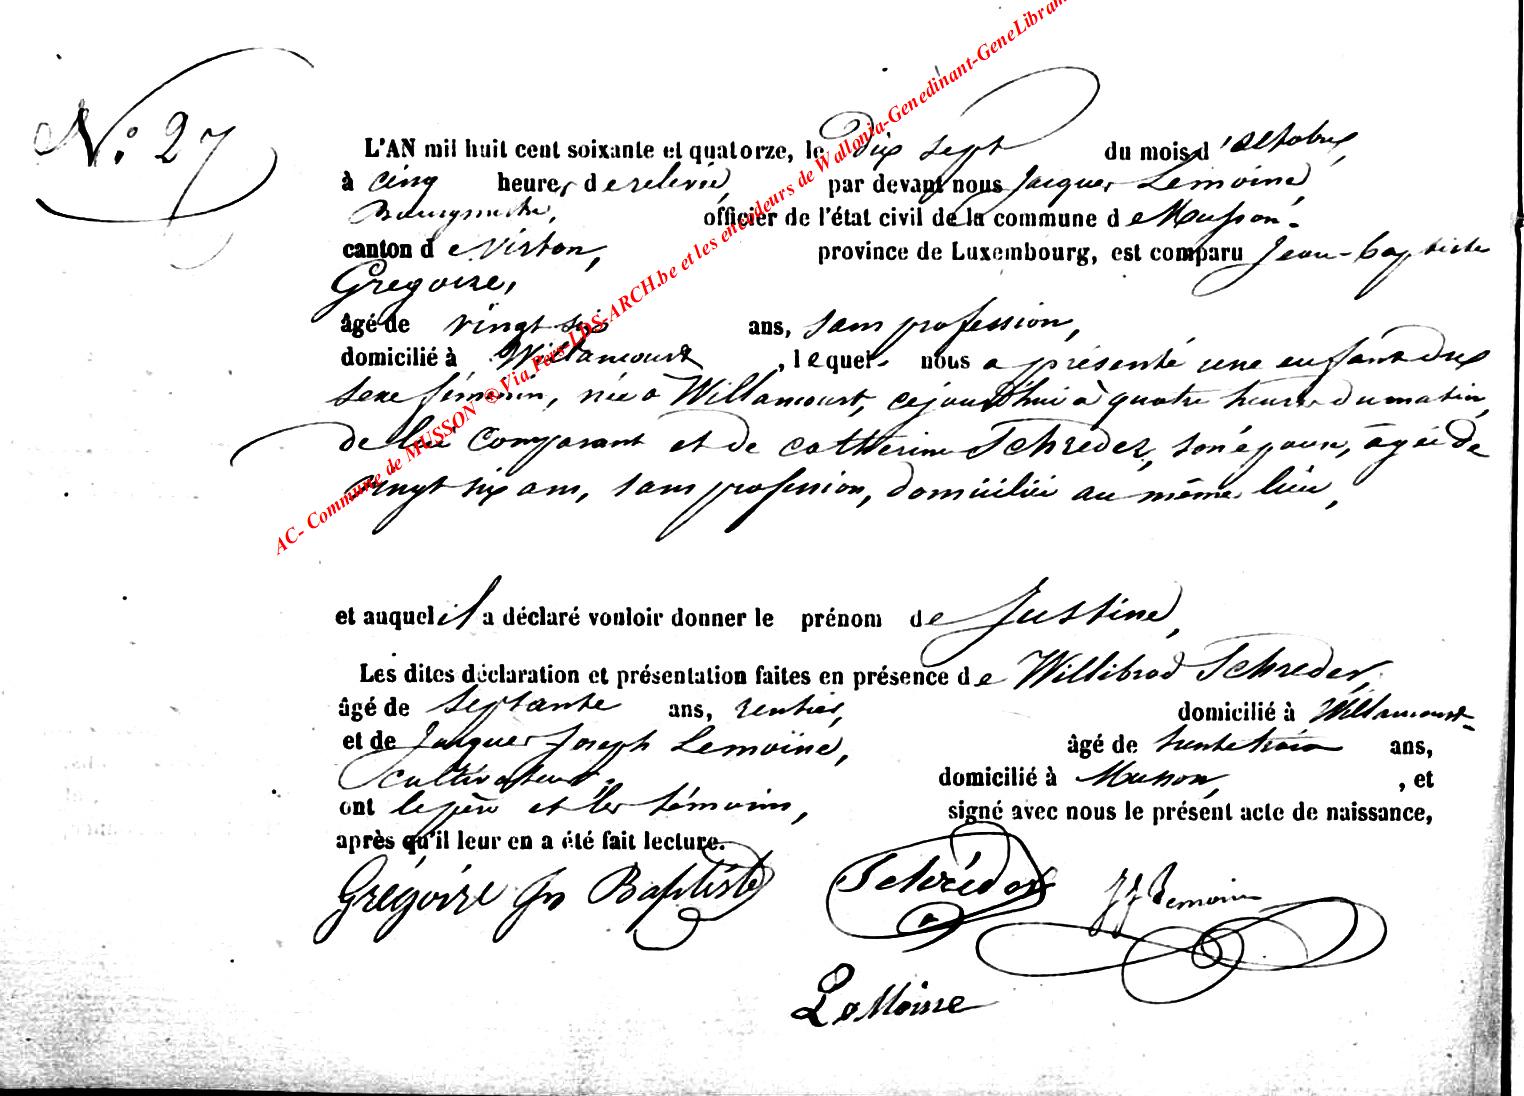 N° 27
L'AN mil huit cent soixante et quatorze, le dix sept du mois d'octobre,
à cinq heures de relevée, par devant nous Jacques Lemoine,
Bourgmestre, officier de l'état civil de la commune de Musson,
canton de Virton, province de Luxembourg, est comparu Jean-Baptiste
Gregoire,
âgé de vingt six ans, sans profession,
domicilié à Willancourt, lequel nous a présenté une enfant du
sexe féminin, née à Willancourt, cejourd'hui à quatre heures du matin,
de lui comparant et de Catherine Schreder, son épouse, âgée de
vingt six ans, sans profession, domiciliée au même lieu,
et auquel il a déclaré vouloir donner le prénom de Justine,
Les dites déclaration et présentation faites en présence de Willibrod Schreder,
âgé de septante ans, rentier, domicilié à Willancourt
et de Jacques Joseph Lemoine, âgé de trente trois ans,
cultivateur, domicilié à Musson, et
ont le père et les témoins, signé avec nous le présent acte de naissance,
après qu'il leur en a été fait lecture.
Grégoire Jn Baptiste Schréder JJ Lemoine
LeMoine
AC- Commune de MUSSON ® Via Pers-LDS-ARCH.be et les encodeurs de Wallonia-Genedinant-GeneLibram